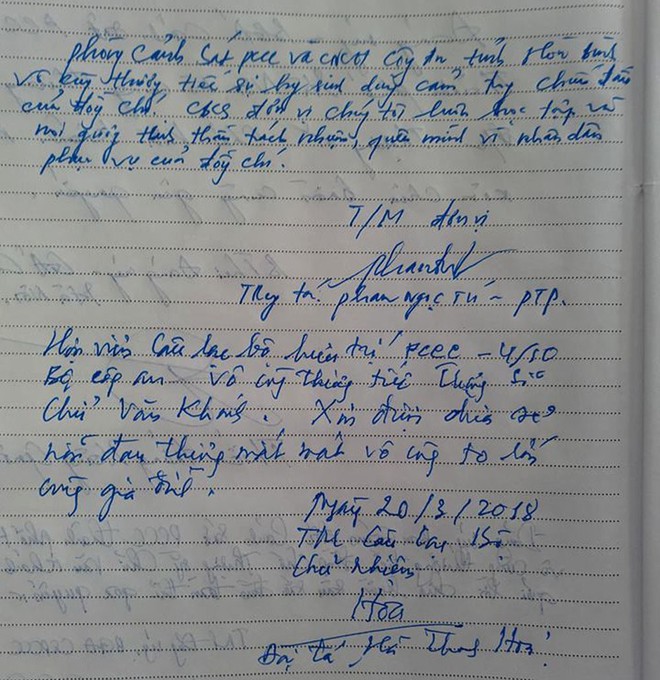 Phòng Cảnh Sát pccc và cnch Công An tỉnh Hòa Bình
vô cùng thương tiếc sự hy sinh dũng cảm,
của đồng chí CBCS đơn vị chúng tôi luôn học tập và
noi gương tinh thần trách nhiệm, quên mình vì nhân dân
phục vụ của đồng chí.
T/M đơn vị
Trung tá. Phan Ngọc Tú - PTP.
Hội viên Câu lạc bộ hưu trí PCCC - 4/10
Bộ công an vô cùng thương tiếc Thượng sĩ
Chử Văn Khánh. Xin được chia sẻ
nỗi đau thương mất mát vô cùng to lớn
cùng gia đình.
Ngày 20/3/2018
TM Câu Lạc Bộ
Chủ nhiệm
Hoa
Đại tá